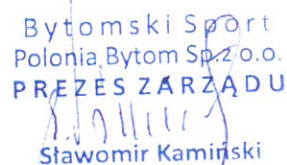 Bytomski Sport
Polonia Bytom Sp.z o.o.
PREZES ZARZĄDU
Sławomir Kamiński